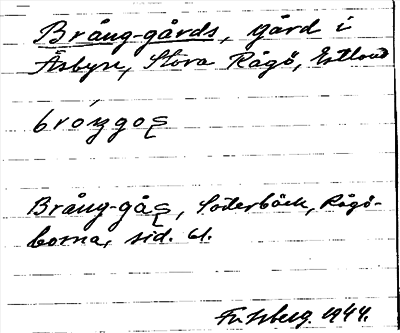 Brång-gårds, gård i
Åsbyn, Stora Rågö, Estland
bróŋgoʂ
Brång-gåʂ, Söderbäck, Rågö-
borna, sid. 61.
1944.